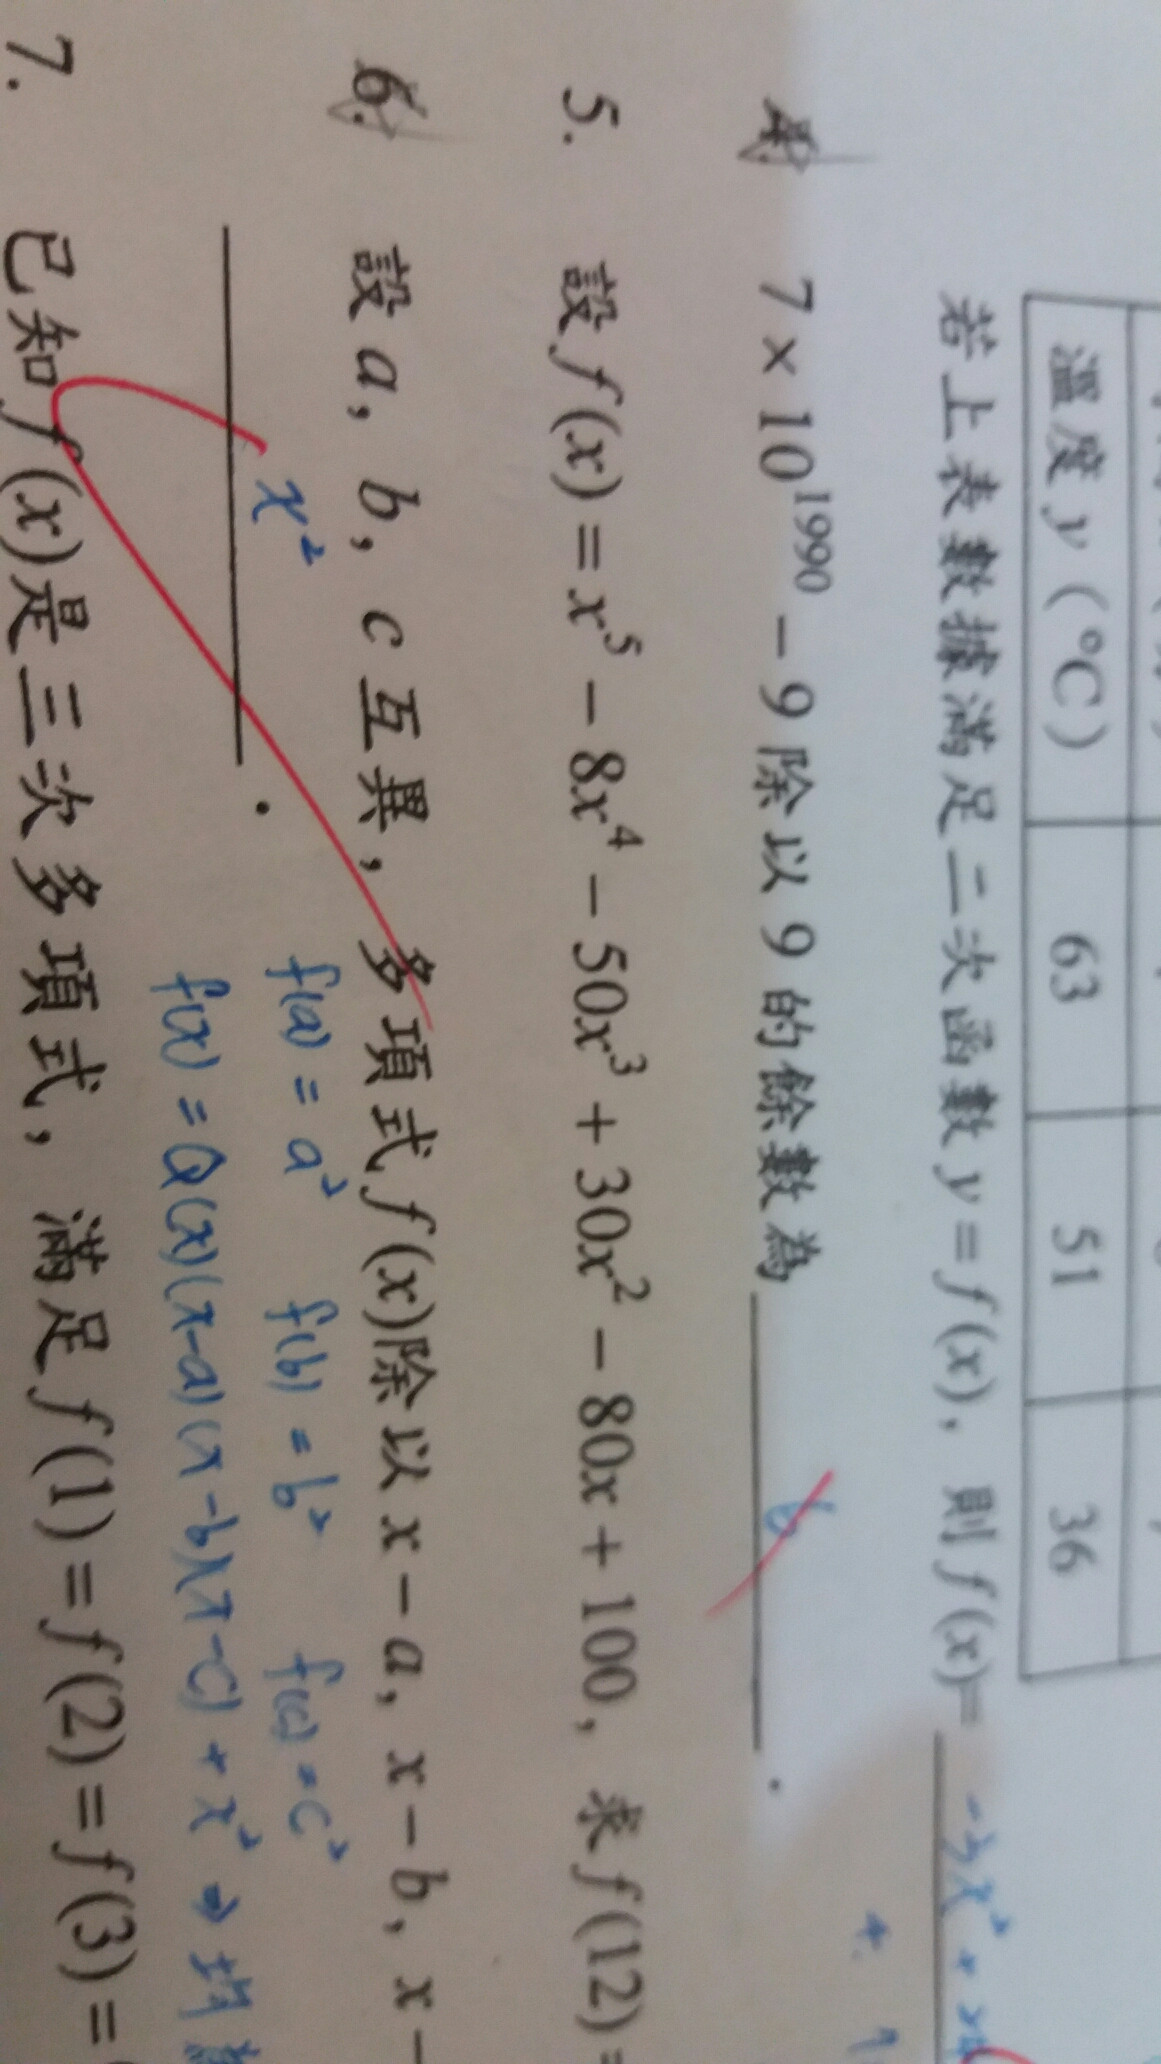 溫度 y (°C) 63 51 36
若上表數據滿足二次函數 y = f(x)，則 f(x)= -3x² +
4. 7 × 10¹⁹⁹⁰ − 9 除以 9 的餘數為 6 .
5. 設 f(x) = x⁵ − 8x⁴ − 50x³ + 30x² − 80x + 100，求 f(12) =
6. 設 a, b, c 互異，多項式 f(x) 除以 x − a, x − b, x −
f(a) = a² f(b) = b² f(c) = c²
x² .
f(x) = Q(x)(x-a)(x-b)(x-c) + x² ⇒
7. 已知 f(x) 是三次多項式，滿足 f(1) = f(2) = f(3) =